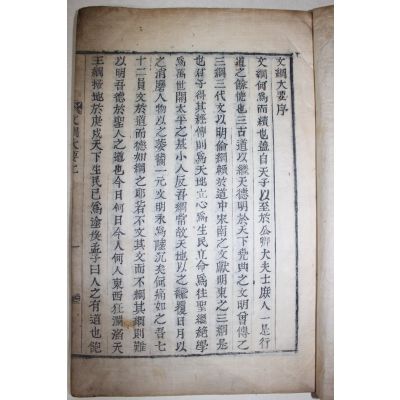 文綱大要序
文綱何爲而績也蓋自天子以至於公卿大夫士庶人一是行
道之餘德也三古道以繼天德明於天下堯典之文明曾傳之
三綱三代文以明倫綱頼於道中宋南之文獻明東之三綱是
也君子得其經傳則爲天地立心爲生民立命爲往聖繼絶學
爲萬世開太平之基小人反吾綱常故天地以之飜覆日月以
之消磨人物以之萎薾一元文明承爲陸沉矣何痛如之吾七
十二員文於道而德如綱之耶若不文其文而不綱其綱則難
以明吾德於聖人之道也今日何日今人何人東西狂瀾滔天
王綱掃地於庚戌天下生民已爲塗炭孟子曰人之有道也飽
文綱大要上